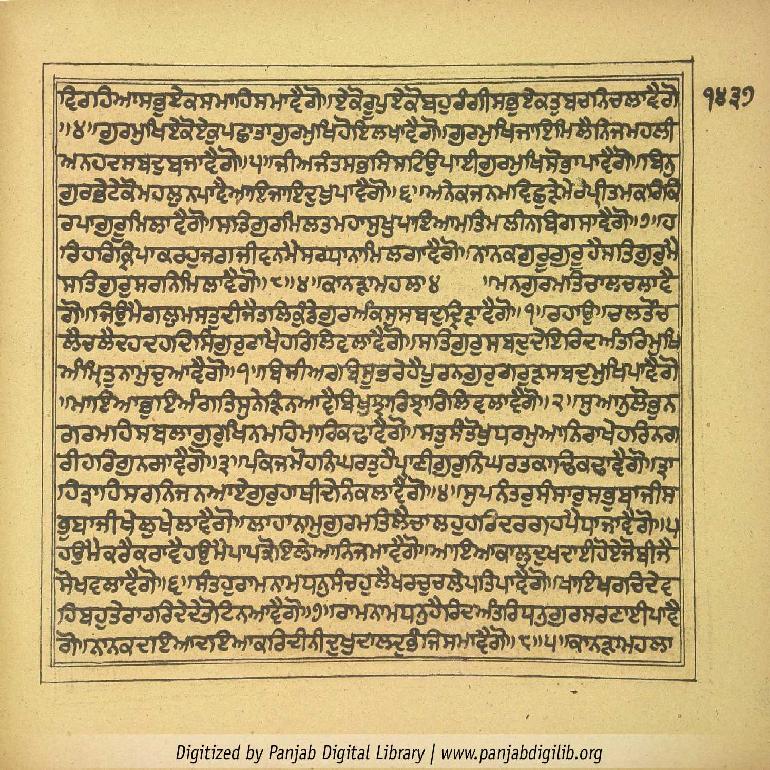 ਦਿਰਹਿਆਸਭੁਏਕਸਮਾਹਿਸਮਾਵੈਗੋ॥ਏਕੋਰੂਪੁਏਕੋਬਹੁਰੰਗੀਸਭੁਏਕਤੁਬਚਨਿਚਲਾਵੈਗੋ
੧੪੩੭
॥੪॥ਗੁਰਮੁਖਿਏਕੋਏਕੁਪਛਾਤਾਗੁਰਮੁਖਿਹੋਇਲਖਾਵੈਗੋ॥ਗੁਰਮੁਖਿਜਾਇਮਿਲੈਨਿਜਮਹਲੀ
ਅਨਹਦਸਬਦੁਬਜਾਵੈਗੋ॥੫॥ਜੀਅਜੰਤਸਭਸਿਸਟਿਉਪਾਈਗੁਰਮੁਖਿਸੋਭਾਪਾਵੈਗੋ॥ਬਿਨੁ
ਗੁਰਭੇਟੇਕੋਮਹਲੁਨਪਾਵੈਆਇਜਾਇਦੁਖੁਪਾਵੈਗੋ॥੬॥ਅਨੇਕਜਨਮਵਿਛੁੜੇਮੇਰੇਪ੍ਰੀਤਮਕਰਿਕਿ
ਰਪਾਗੁਰੂਮਿਲਾਵੈਗੋ॥ਸਤਿਗੁਰਮਿਲਤਮਹਾਸੁਖੁਪਾਇਆਮਤਿਮਲੀਨਬਿਗਸਾਵੈਗੋ॥੭॥ਹ
ਰਿਹਰਿਕ੍ਰਿਪਾਕਰਹੁਜਗਜੀਵਨਮੈਸਰਧਾਨਾਮਿਲਗਾਵੈਗੋ॥ਨਾਨਕਗੁਰੂਗੁਰੂਹੈਸਤਿਗੁਰੁਮੈ
ਸਤਿਗੁਰੁਸਰਨਿਮਿਲਾਵੈਗੋ॥੮॥੪॥ਕਾਨੜਾਮਹਲਾ੪ ॥ਮਨਗੁਰਮਤਿਚਾਲਚਲਾਵੈ
ਗੋ॥ਜਿਉਮੈਗਲੁਮਸਤੁਦੀਜੈਤਲਿਕੁੰਡੇਗੁਰਅੰਕਸੁਸਬਦੁਦ੍ਰਿੜਾਵੈਗੋ॥੧॥ਰਹਾਉ॥ਚਲਤੌਚ
ਲੈਚਲੈਦਹਦਹਦਿਸਿਗੁਰੁਰਾਖੈਹਰਿਲਿਵਲਾਵੈਗੋ॥ਸਤਿਗੁਰੁਸਬਦੁਦੇਇਰਿਦਅੰਤਰਿਮੁਖਿ
ਅੰਮ੍ਰਿਤੁਨਾਮੁਚੁਆਵੈਗੋ॥੧॥ਬਿਸੀਅਰਬਿਸੂਭਰੇਹੈਪੂਰਨਗੁਰੁਗਰੁੜਸਬਦੁਮੁਖਿਪਾਵੈਗੋ
॥ਮਾਇਆਭੁਇਅੰਗਤਿਸੁਨੇੜਿਨਆਵੈਬਿਖੁਝਾਰਿਝਾਰਿਲਿਵਲਾਵੈਗੋ॥੨॥ਸੁਆਨੁਲੋਭੁਨ
ਗਰਮਹਿਸਬਲਾਗੁਰੁਖਿਨਮਹਿਮਾਰਿਕਢਾਵੈਗੋ॥ਸਤੁਸੰਤੋਖੁਧਰਮੁਆਨਿਰਾਖੇਹਰਿਨਗ
ਰੀਹਰਿਗੁਨਗਾਵੈਗੋ॥੩॥ਪੰਕਜਮੋਹਨਿਘਰਤੁਹੈਪ੍ਰਾਣੀਗੁਰੁਨਿਘਰਤਕਾਢਿਕਢਾਵੈਗੋ॥ਤ੍ਰਾ
ਹਿਤ੍ਰਾਹਿਸਰਨਿਜਨਆਏਗੁਰੁਹਾਥੀਦੇਨਿਕਲਾਵੈਗੋ॥੪॥ਸੁਪਨੰਤਰੁਸੰਸਾਰੁਸਭੁਬਾਜੀਸ
ਭੁਬਾਜੀਖੇਲੁਖੇਲਾਵੈਗੋ॥ਲਾਹਾਨਾਮੁਗੁਰਮਤਿਲੈਚਾਲਹੁਹਰਿਦਰਗਹਪੈਧਾਜਾਵੈਗੋ॥੫
ਹਉਮੈਕਰੈਕਰਾਵੈਹਉਮੈਪਾਪਕੋਇਲੇਆਨਿਜਮਾਵੈਗੋ॥ਆਇਆਕਾਲੁਦੁਖਦਾਈਹੋਏਜੋਬੀਜੈ
ਸੋਖਵਲਾਵੈਗੋ॥੬॥ਸੰਤਹੁਰਾਮਨਾਮਧਨੁਸੰਚਹੁਲੈਖਰਚੁਚਲੇਪਤਿਪਾਵੈਗੋ॥ਖਾਇਖਰਚਿਦੇਵ
ਹਿਬਹੁਤੇਰਾਹਰਿਦੇਦੇਤੋਟਿਨਆਵੈਗੋ॥੭॥ਰਾਮਨਾਮਧਨੁਹੈਰਿਦਅੰਤਰਿਧਨੁਗੁਰਸਰਣਾਈਪਾਵੈ
ਗੋ॥ਨਾਨਕਦਇਆਦਇਆਕਰਿਦੀਨੀਦੁਖੁਦਾਲਦੁਭੰਜਿਸਮਾਵੈਗੋ॥੮॥੫॥ਕਾਨੜਾਮਹਲਾ
Digitized by Panjab Digital Library | www.panjabdigilib.org